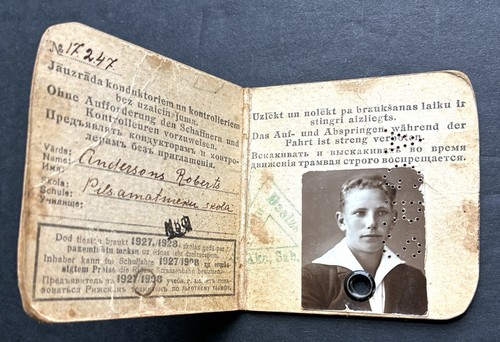 № 17247
Jāuzrāda konduktoriem un kontrolieriem
bez uzaicinājuma.
Ohne Aufforderung den Schaffnern und
Kontrolleuren vorzuweisen.
Предъявлять кондукторамъ и контро-
лерамъ безъ приглашенія.
Vārds:
Name: Andersons Roberts
Имя:
Skola:
Schule: Pilsamatnieku skola
Училище:
Dod tiesību braukt 1927/1928. skolas gadā par
Inhaber kann im Schuljahre 1927/1928 zu ermäs-
sigtem Preise die Rigaer Strassenbahn benutzen.
Предъявитель въ 1927/1928
Uzlēkt un nolēkt pa braukšanas laiku ir
stingri aizliegts.
Das Auf- und Abspringen während der
Fahrt ist streng verboten.
Вскакивать и выскакивать во время
движенія трамвая строго воспрещается.